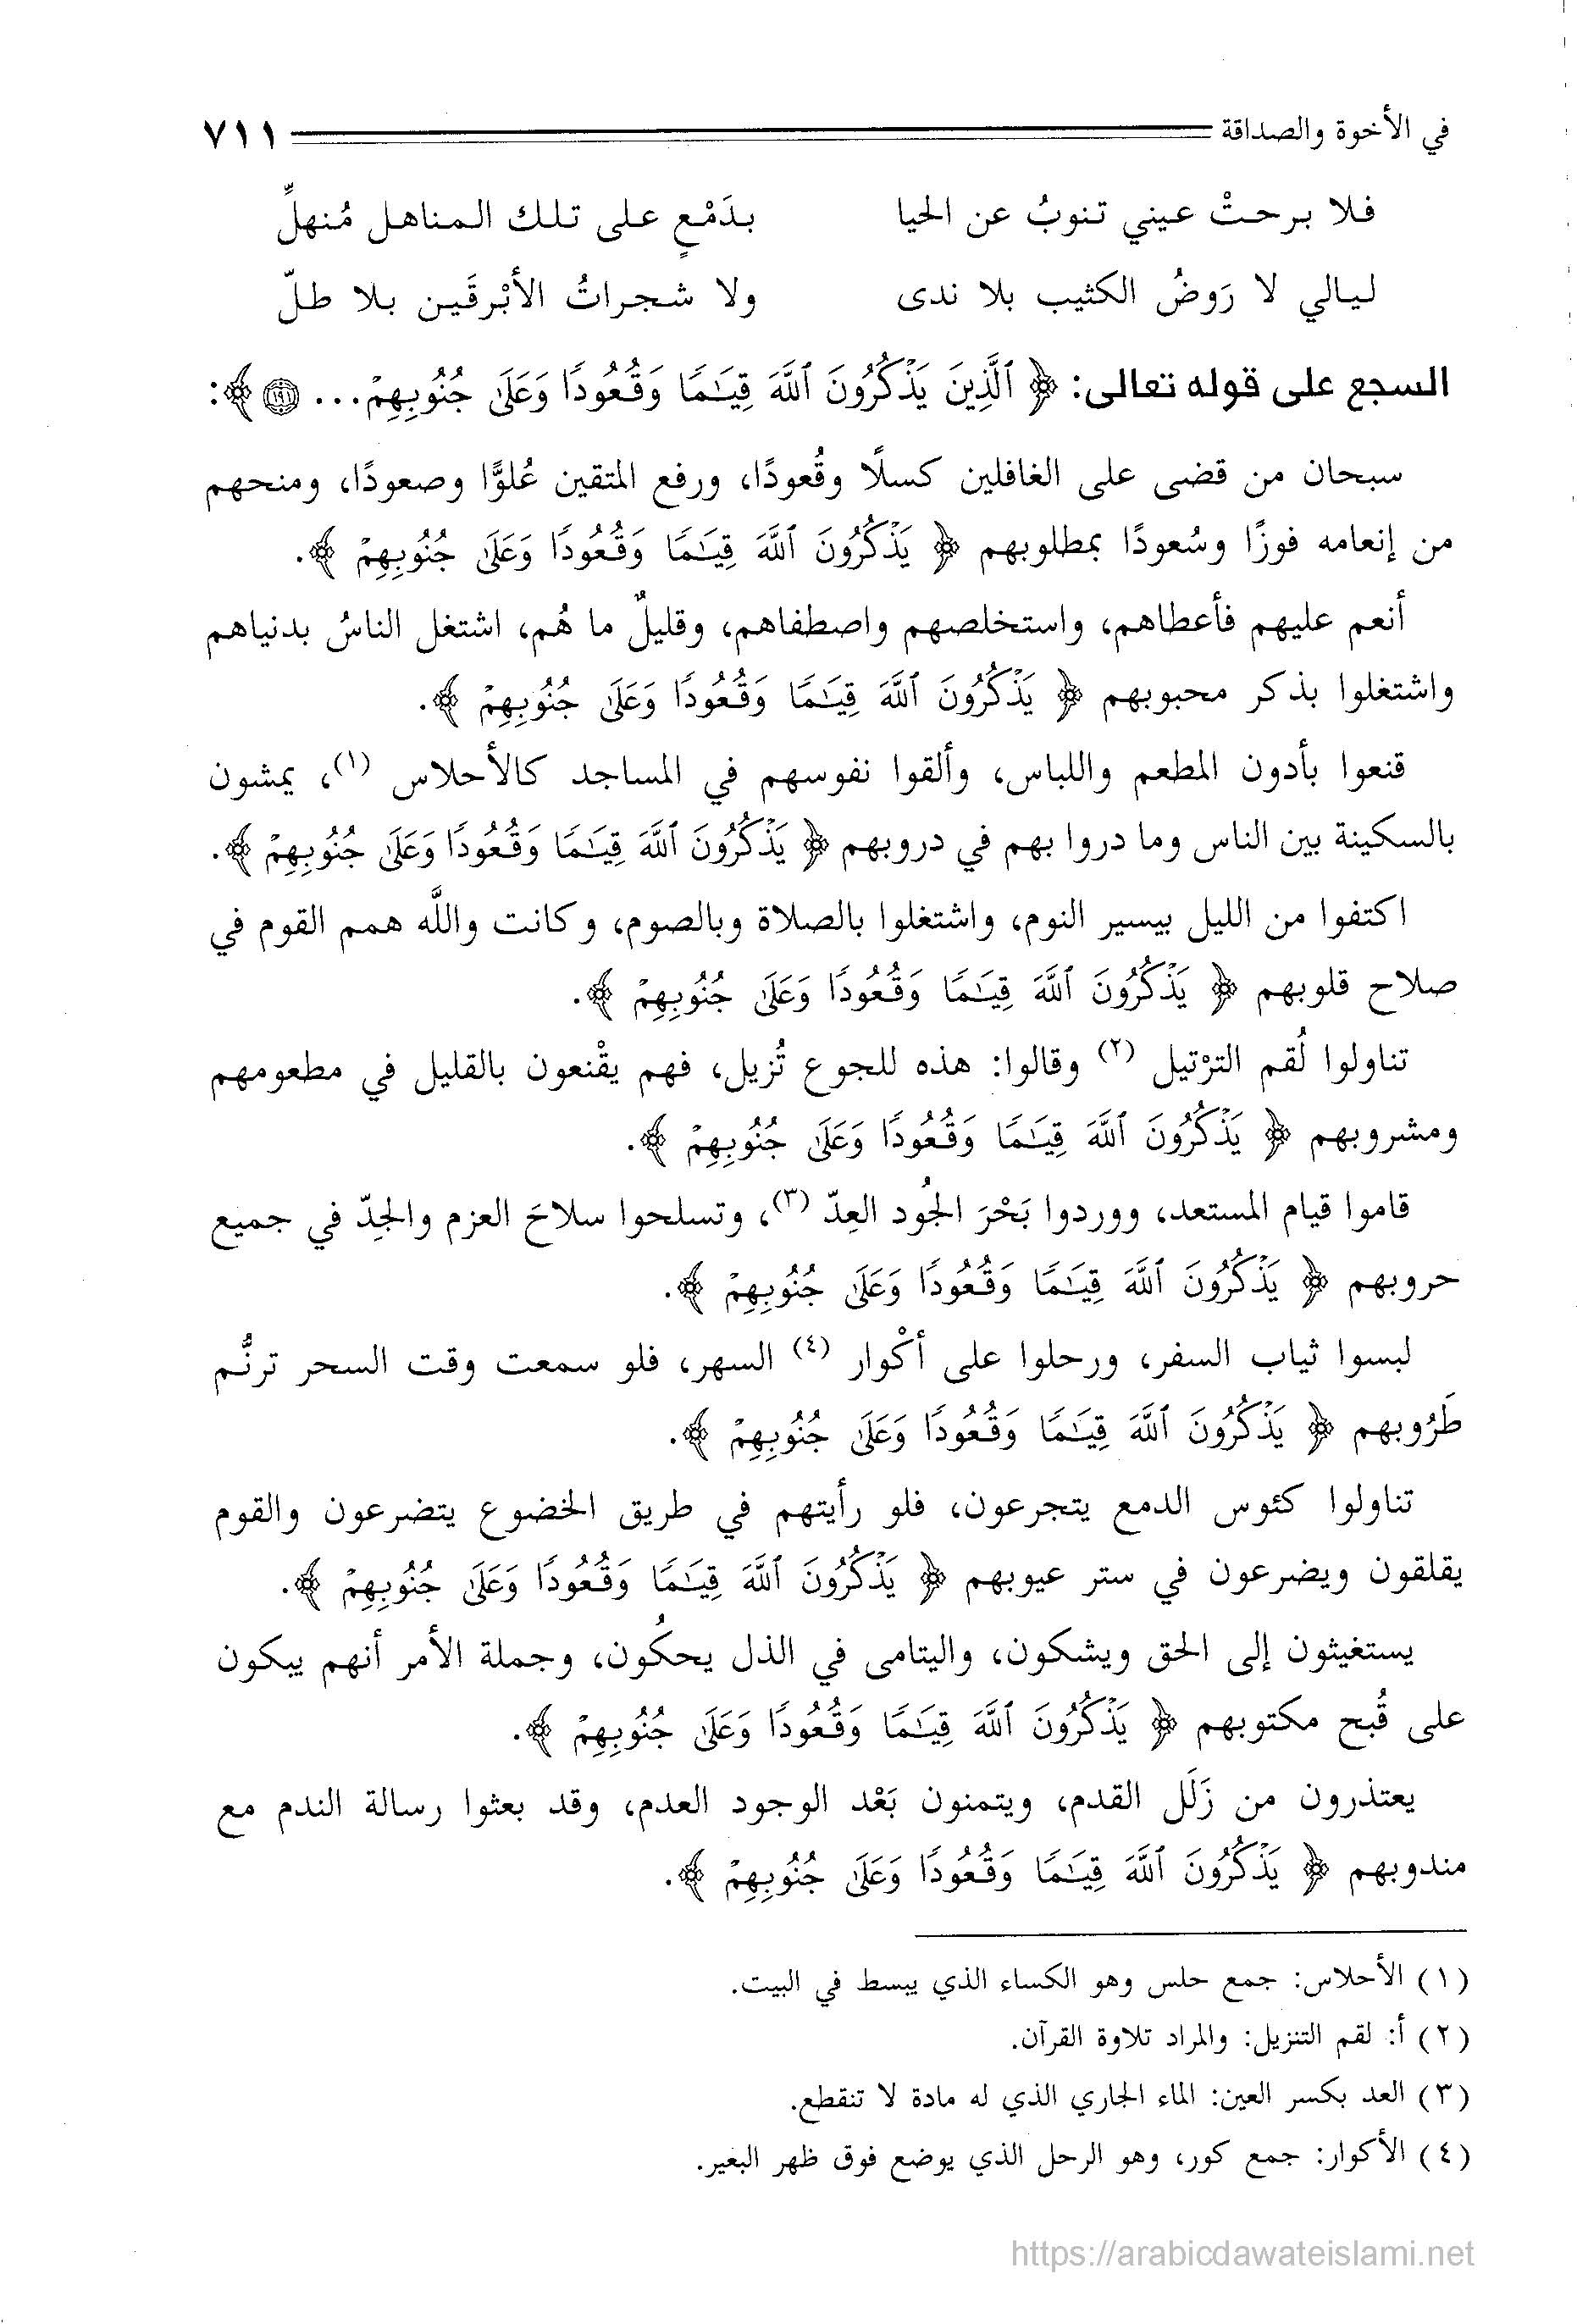 في الأخوة والصداقة ٧١١
فلا برحتْ عيني تنوبُ عن الحيا بدَمْعٍ على تلك المناهل مُنهلِّ
ليالي لا رَوضُ الكثيب بلا ندى ولا شجراتُ الأبْرقَين بلا طلّ
السجع على قوله تعالى: ﴿ ٱلَّذِينَ يَذْكُرُونَ ٱللَّهَ قِيَـٰمًا وَقُعُودًا وَعَلَىٰ جُنُوبِهِمْ... ١٩١ ﴾:
سبحان من قضى على الغافلين كسلًا وقُعودًا، ورفع المتقين عُلوًّا وصعودًا، ومنحهم
من إنعامه فوزًا وسُعودًا بمطلوبهم ﴿ يَذْكُرُونَ ٱللَّهَ قِيَـٰمًا وَقُعُودًا وَعَلَىٰ جُنُوبِهِمْ ﴾.
أنعم عليهم فأعطاهم، واستخلصهم واصطفاهم، وقليلٌ ما هُم، اشتغل الناسُ بدنياهم
واشتغلوا بذكر محبوبهم ﴿ يَذْكُرُونَ ٱللَّهَ قِيَـٰمًا وَقُعُودًا وَعَلَىٰ جُنُوبِهِمْ ﴾.
قنعوا بأدون المطعم واللباس، وألقوا نفوسهم في المساجد كالأحلاس (١)، يمشون
بالسكينة بين الناس وما دروا بهم في دروبهم ﴿ يَذْكُرُونَ ٱللَّهَ قِيَـٰمًا وَقُعُودًا وَعَلَىٰ جُنُوبِهِمْ ﴾.
اكتفوا من الليل بيسير النوم، واشتغلوا بالصلاة وبالصوم، وكانت واللَّه همم القوم في
صلاح قلوبهم ﴿ يَذْكُرُونَ ٱللَّهَ قِيَـٰمًا وَقُعُودًا وَعَلَىٰ جُنُوبِهِمْ ﴾.
تناولوا لُقم الترْتيل (٢) وقالوا: هذه للجوع تُزيل، فهم يقْنعون بالقليل في مطعومهم
ومشروبهم ﴿ يَذْكُرُونَ ٱللَّهَ قِيَـٰمًا وَقُعُودًا وَعَلَىٰ جُنُوبِهِمْ ﴾.
قاموا قيام المستعد، ووردوا بَحْرَ الجُود العِدّ (٣)، وتسلحوا سلاحَ العزم والجِدّ في جميع
حروبهم ﴿ يَذْكُرُونَ ٱللَّهَ قِيَـٰمًا وَقُعُودًا وَعَلَىٰ جُنُوبِهِمْ ﴾.
لبسوا ثياب السفر، ورحلوا على أكْوار (٤) السهر، فلو سمعت وقت السحر ترنُّم
طَرُوبهم ﴿ يَذْكُرُونَ ٱللَّهَ قِيَـٰمًا وَقُعُودًا وَعَلَىٰ جُنُوبِهِمْ ﴾.
تناولوا كئوس الدمع يتجرعون، فلو رأيتهم في طريق الخضوع يتضرعون والقوم
يقلقون ويضرعون في ستر عيوبهم ﴿ يَذْكُرُونَ ٱللَّهَ قِيَـٰمًا وَقُعُودًا وَعَلَىٰ جُنُوبِهِمْ ﴾.
يستغيثون إلى الحق ويشكون، واليتامى في الذل يحكُون، وجملة الأمر أنهم يبكون
على قُبح مكتوبهم ﴿ يَذْكُرُونَ ٱللَّهَ قِيَـٰمًا وَقُعُودًا وَعَلَىٰ جُنُوبِهِمْ ﴾.
يعتذرون من زَلَل القدم، ويتمنون بَعْد الوجود العدم، وقد بعثوا رسالة الندم مع
مندوبهم ﴿ يَذْكُرُونَ ٱللَّهَ قِيَـٰمًا وَقُعُودًا وَعَلَىٰ جُنُوبِهِمْ ﴾.
(١) الأحلاس: جمع حلس وهو الكساء الذي يبسط في البيت.
(٢) أ: لقم التنزيل: والمراد تلاوة القرآن.
(٣) العد بكسر العين: الماء الجاري الذي له مادة لا تنقطع.
(٤) الأكوار: جمع كور، وهو الرحل الذي يوضع فوق ظهر البعير.
https://arabicdawateislami.net